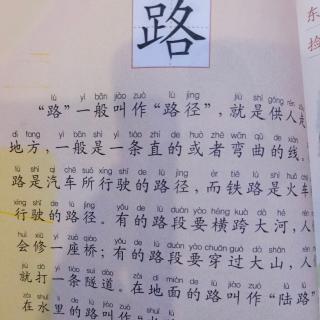 路
东
捡
lù yì bān jiào zuò lù jìng jiù shì gōng rén zǒu
“路”一般叫作“路径”,就是供人走
dì fang yì bān shì yì tiáo zhí de huò zhě wān qū de xiàn
地方,一般是一条直的或者弯曲的线。
lù shì qì chē suǒ xíng shǐ de lù jìng ér tiě lù shì huǒ chē
路是汽车所行驶的路径,而铁路是火车
xíng shǐ de lù jìng yǒu de lù duàn yào héng kuà dà hé rén
行驶的路径。有的路段要横跨大河,人
huì xiū yí zuò qiáo yǒu de lù duàn yào chuān guò dà shān rén
会修一座桥;有的路段要穿过大山,人
jiù dǎ yì tiáo suì dào zài dì miàn de lù jiào zuò lù lù
就打一条隧道。在地面的路叫作“陆路”
zài shuǐ lǐ de lù jiào zuò
在水里的路叫作